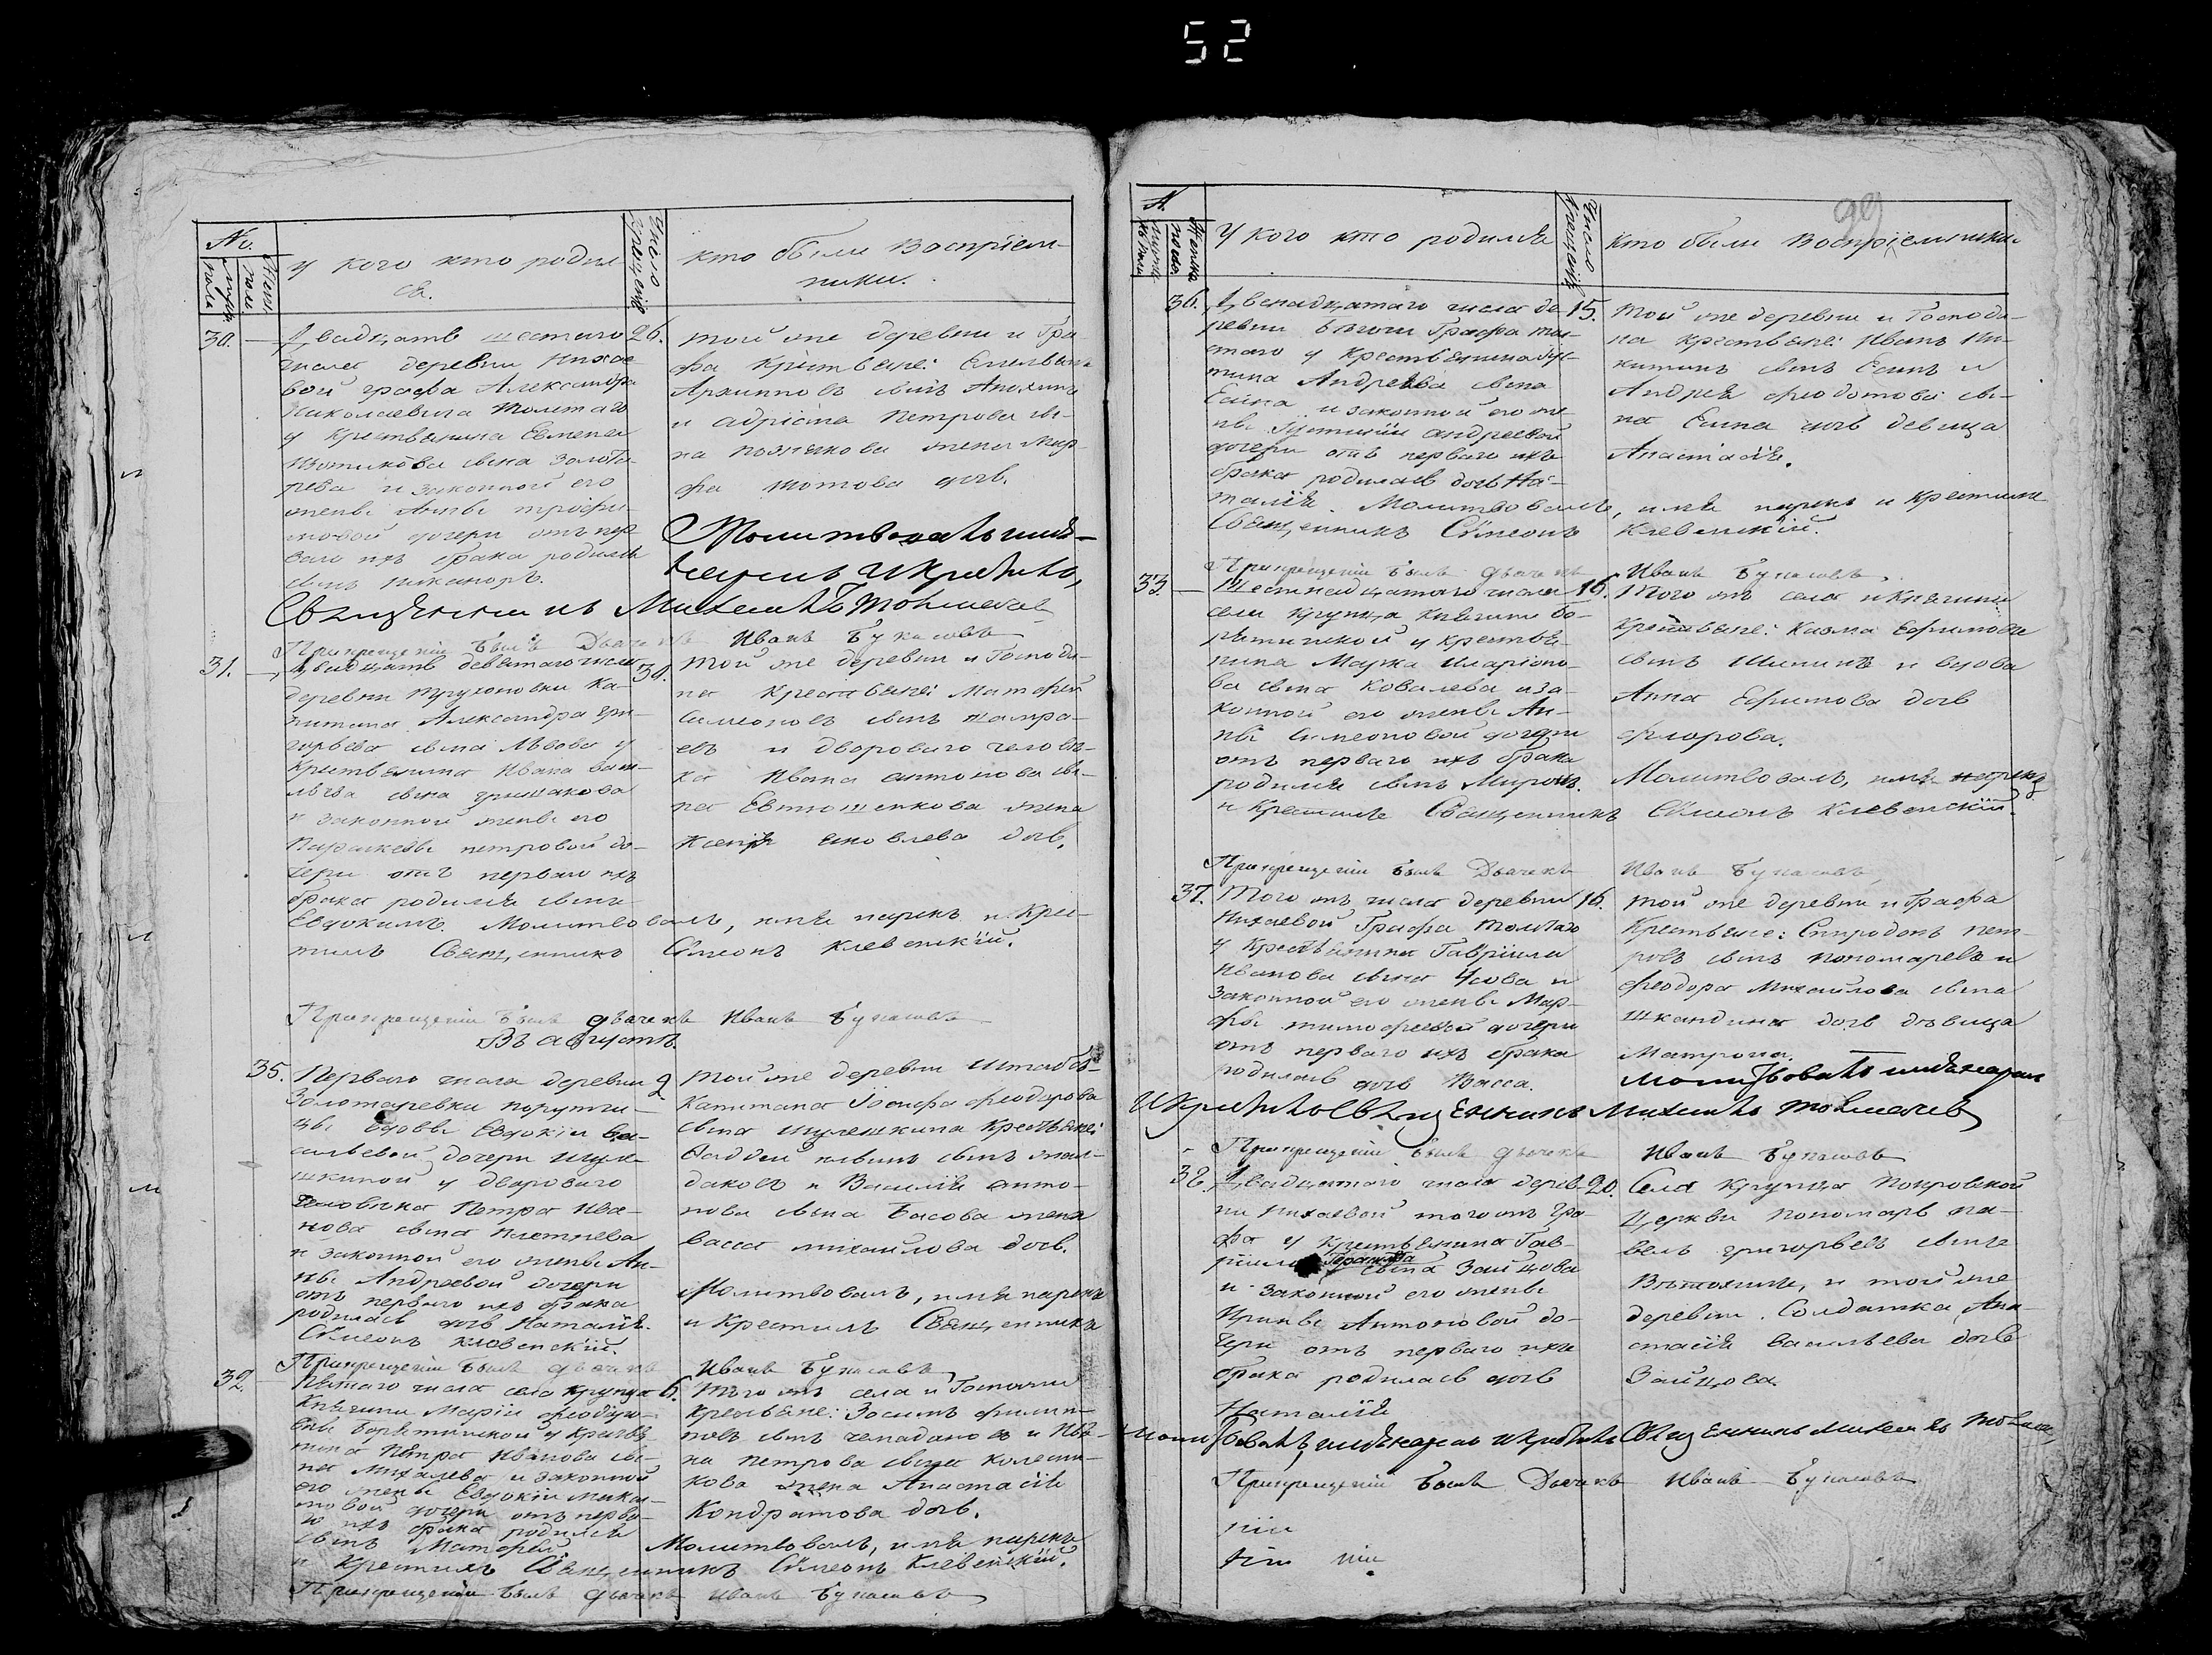 52
№.
Мужс. пола
Женс. пола
У кого кто родил
ся.
Число крещенія
кто были Воспріем-
ники.
30.
Двадцать шестаго
числа деревни Нихае
вой графа Александра
Николаевича Толстаго
у крестьянина Евмена
сына Золота-
рева и законной его
жены Анны трофи-
мовой дочери отъ пер
ваго ихъ брака родился
сынъ Никаноръ.
26.
той же деревни и Гра
фа крестьяне: Емельянъ
Архиповъ сынъ Анохинъ
и Адріана Петрова сы-
на Познякова жена Мар-
фа Титова дочь.
Молитвовалъ имя
нарекъ и крестилъ,
Священникъ Михаилъ Толмачевъ
При крещеніи былъ Дьячекъ Иванъ Букасовъ
31.
Двадцать девятаго числа
деревни Трухоновки Ка-
питана Александра гри-
горьева сына Львова у
крестьянина Ивана Васи-
льева сына гришакова
и законной жены его
Параскевы петровой до-
чери отъ перваго ихъ
брака родился сынъ
Евдокимъ. Молитвовалъ, имя нарекъ и крес-
тилъ Священникъ Сѵмеонъ Клевенскій.
30.
той же деревни и Господи-
на крестьяне: Матфей
Симеоновъ сынъ
евъ и двороваго челове-
ка Ивана антонова сы-
на Евтюшенкова жена
Ксенія яковлева дочь.
При крещеніи былъ дьячекъ Иванъ Букасовъ
Въ августѣ.
35.
Перваго числа деревни
Золотаревки поручи-
цы вдовы Евдокіи Ва-
сильевой дочери Шуле-
шкиной у двороваго
человека Петра Ива-
нова сына Плетнева
и законной его жены Ан-
ны Андреевой дочери
отъ перваго ихъ брака
родилась дочь Наталія.
Сѵмеонъ Клевенскій.
2
той же деревни Штабсъ-
Капитана Іосифа Феодорова
сына Шулешкина крестьяне:
Фаддей сынъ
даковъ и Василія анто-
нова сына Басова жена
Васса михайлова дочь.
Молитвовалъ, имя нарекъ
и крестилъ Священникъ
При крещеніи былъ дьячекъ Иванъ Букасовъ
32.
Пятаго числа села крупца
Княгини Маріи Феодоро-
вны Барятинской у крестья
нина Петра Иванова сы-
на Михалева и законной
его жены Евдокіи
мовой дочери отъ перва-
го ихъ брака родился
сынъ Матфей.
6.
Того жъ села и Госпожи
крестьяне: Зосимъ филип-
повъ сынъ Чемодановъ и Ива-
на петрова сына Колесни-
кова жена Анастасія
Кондратова дочь.
Молитвовалъ, имя нарекъ
и крестилъ Священникъ Сѵмеонъ Клевенскій.
При крещеніи былъ дьячекъ Иванъ Букасовъ
99
№.
Мужска полу
Женска полу
У кого кто родился
Число крещенія
Кто были Воспріемники.
36.
Двенадцатаго числа де
ревни Графа тол-
стаго у крестьянина Іус-
тина Андреева сына
Есина и законной его же-
ны Іустиніи андреевой
дочери отъ перваго ихъ
брака родилась дочь На-
талія. Молитвовалъ, имя нарекъ и крестилъ
Священникъ Сѵмеонъ Клевенскій.
15.
Той же деревни и Господи-
на крестьяне: Иванъ Ни-
китинъ сынъ Есинъ и
Андрея федотова сы-
на Есина дочь девица
Анастасія.
При крещеніи былъ дьячекъ Иванъ Букасовъ.
33.
Шестнадцатаго числа
села Крупца Княгини Ба-
рятинской у крестья-
нина Марка Иларіоно-
ва сына Ковалева и за-
конной его жены Ан-
ны Симеоновой дочери
отъ перваго ихъ брака
родился сынъ Миронъ.
16.
Того жъ села и Княгини
крестьяне: Козма Ефимовъ
сынъ Шининъ и вдова
Анна Ефимова дочь
флорова.
Молитвовалъ, имя нарекъ
и крестилъ Священникъ Сѵмеонъ Клевенскій.
При крещеніи былъ Дьячекъ Иванъ Букасовъ
37.
Того жъ числа деревни
Нихаевой Графа Толстаго
у крестьянина Гавріила
Иванова сына Усова и
законной его жены Мар-
фы тимофеевой дочери
отъ перваго ихъ брака
родилась дочь Васса.
16.
той же деревни и Графа
Крестьяне: Спиридонъ пет-
ровъ сынъ Пономаревъ и
Феодора Михайлова сына
шкандина дочь дѣвица
Матрона.
Молитвовалъ имя нарекъ
И крестилъ Священникъ Михаилъ Толмачевъ
При крещеніи былъ дьячекъ Иванъ Букасовъ
38.
Двадцатаго числа дерев-
ни Нихаевой того жъ Гра-
фа у крестьянина Гав-
ріила Герасимова сына Зайцова
и законной его жены
Ирины Антоновой до-
чери отъ перваго ихъ
брака родилась дочь
Наталія
20.
Села Крупца Покровской
Церкви Пономарь Па-
велъ григорьевъ сынъ
и той же
деревни Солдатка Ана-
стасія Васильева дочь
Зайцова.
Молитвовалъ, имя нарекъ и крестилъ Священникъ Михаилъ Толмач,
При крещеніи былъ Дьячекъ Иванъ Букасовъ